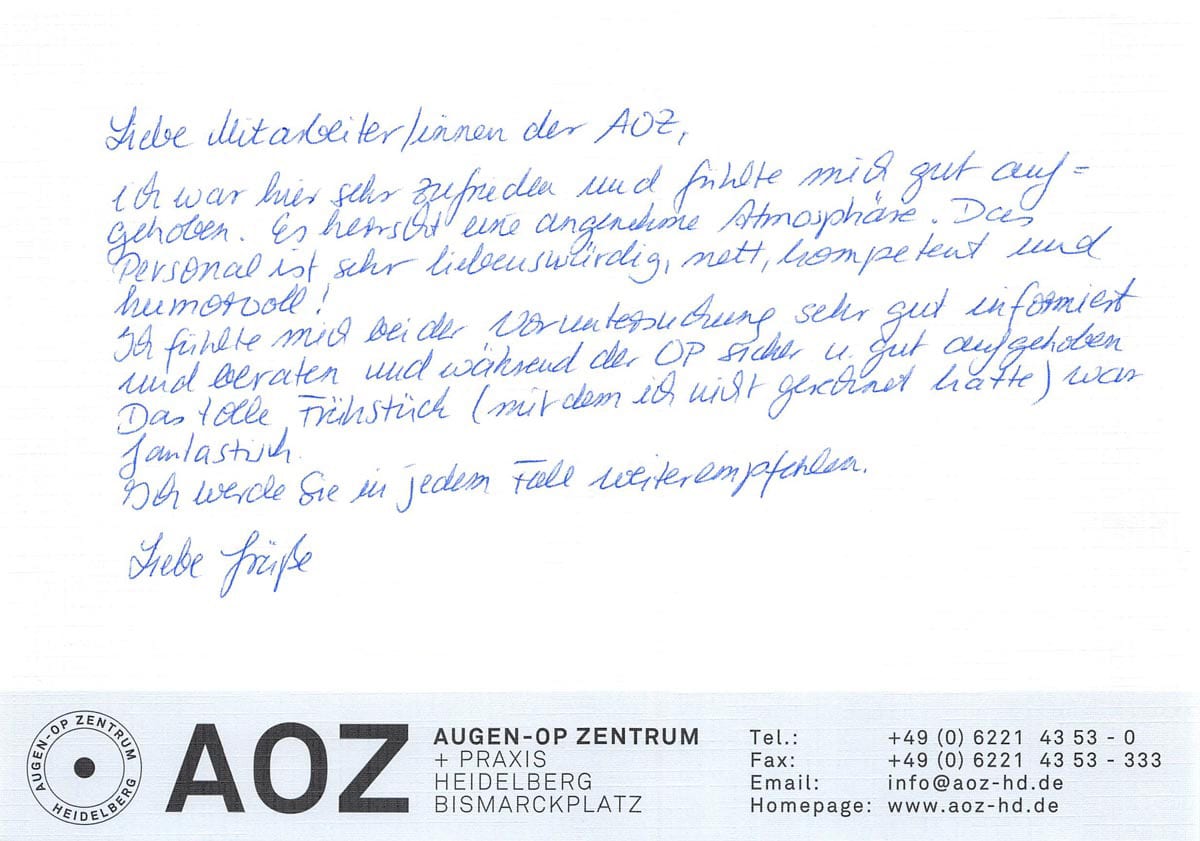 Liebe Mitarbeiter/innen der AOZ,
ich war hier sehr zufrieden und fühlte mich gut auf=
gehoben. Es herrscht eine angenehme Atmosphäre. Das
Personal ist sehr liebenswürdig, nett, kompetent und
humorvoll!
Ich fühlte mich bei der Voruntersuchung sehr gut informiert
und beraten und während der OP sicher u. gut aufgehoben
Das tolle Frühstück (mit dem ich nicht gerechnet hatte) war
fantastisch.
Ich werde Sie in jedem Fall weiterempfehlen.
Liebe Grüße
AUGEN-OP ZENTRUM
HEIDELBERG
AOZ
AUGEN-OP ZENTRUM
+ PRAXIS
HEIDELBERG
BISMARCKPLATZ
Tel.: +49 (0) 6221 43 53 - 0
Fax: +49 (0) 6221 43 53 - 333
Email: info@aoz-hd.de
Homepage: www.aoz-hd.de